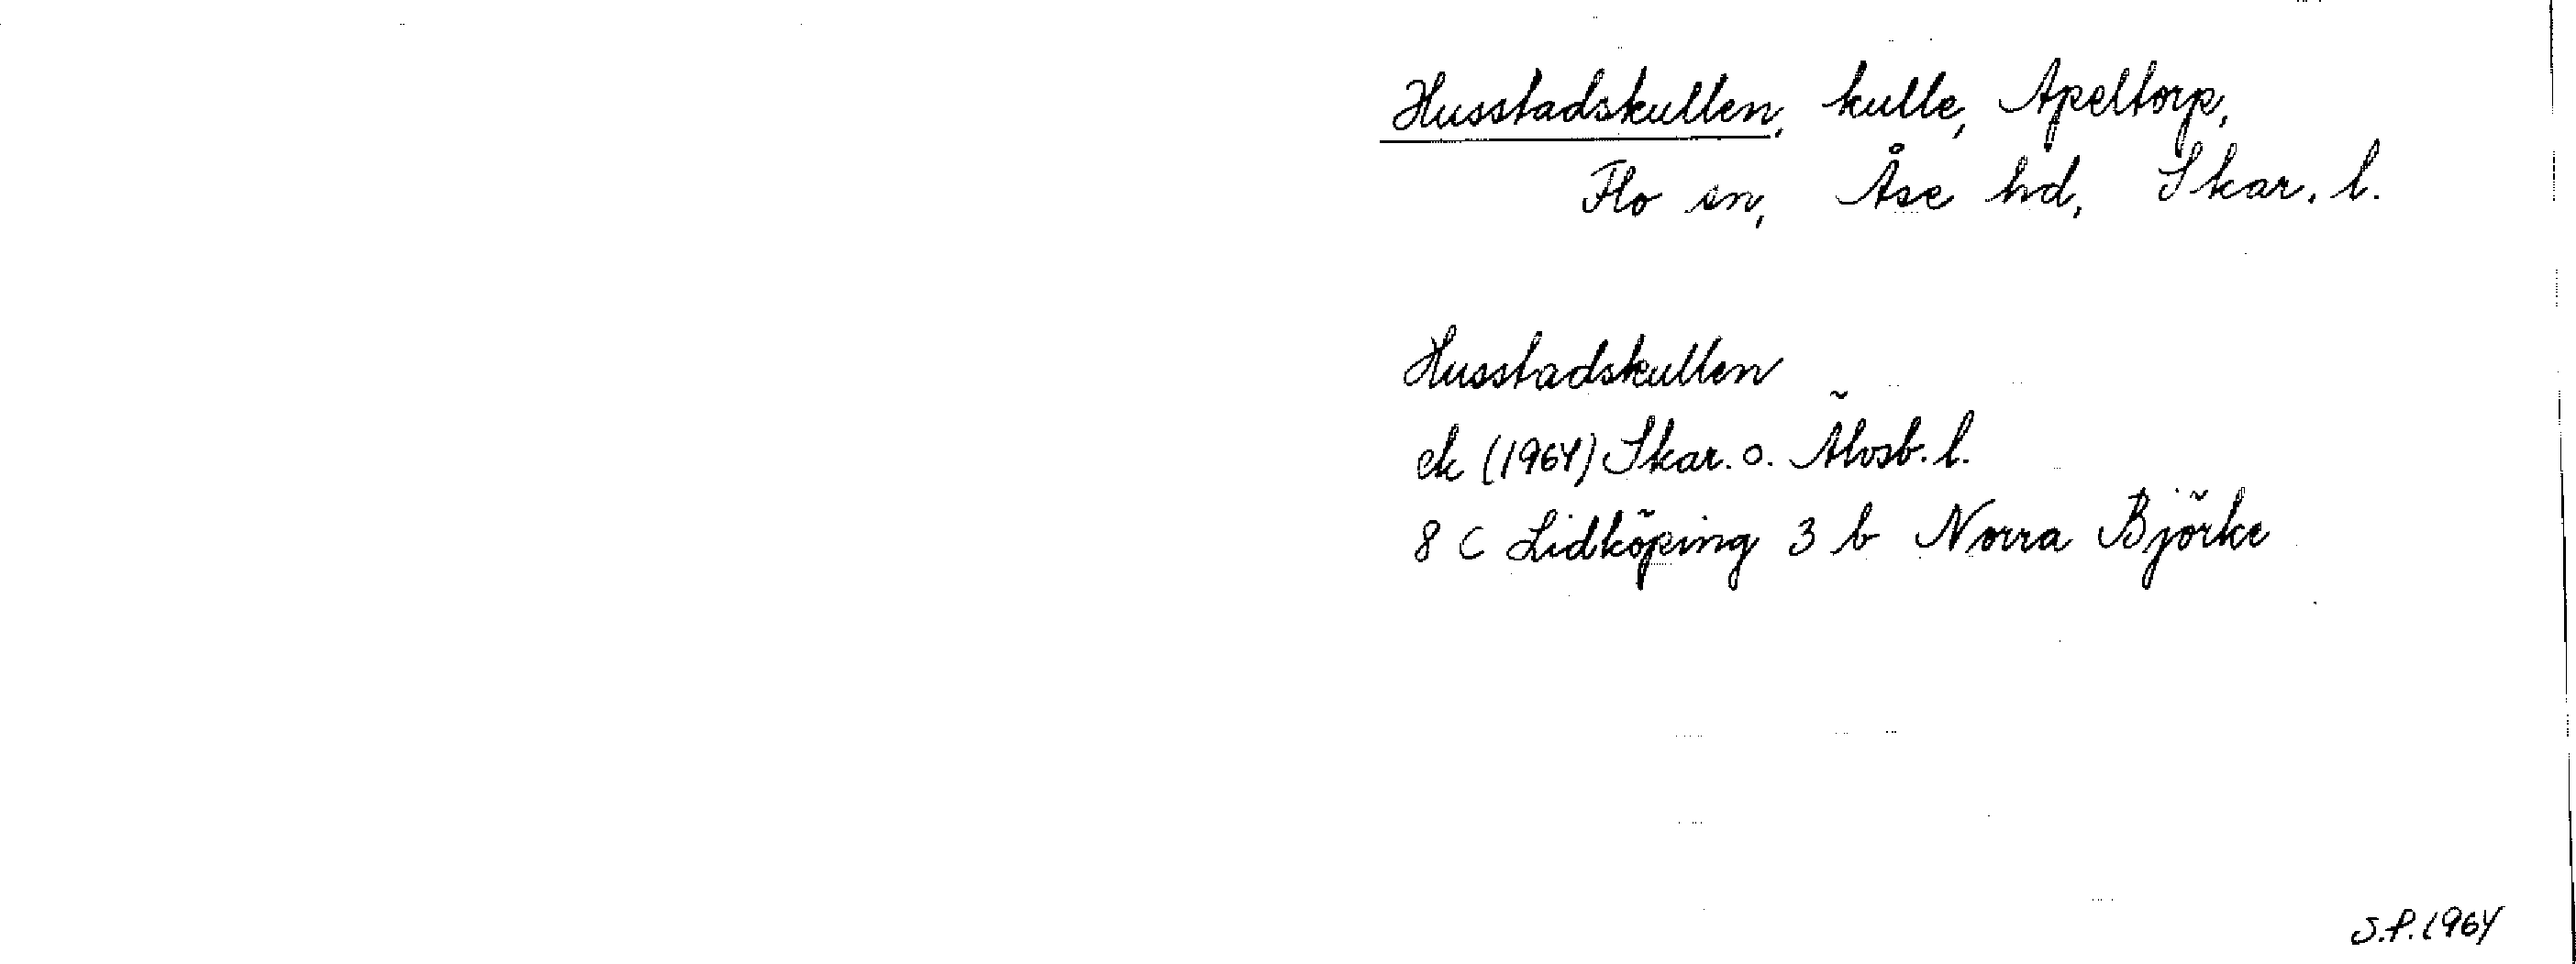 Husstadskullen, kulle, Apeltorp,
Flo sn, Åse hd, Skar. l.
Husstadskullen
ek (1964) Skar. o. Älvsb. l.
8 C Lidköping 3 b Norra Björke
S.P. 1964